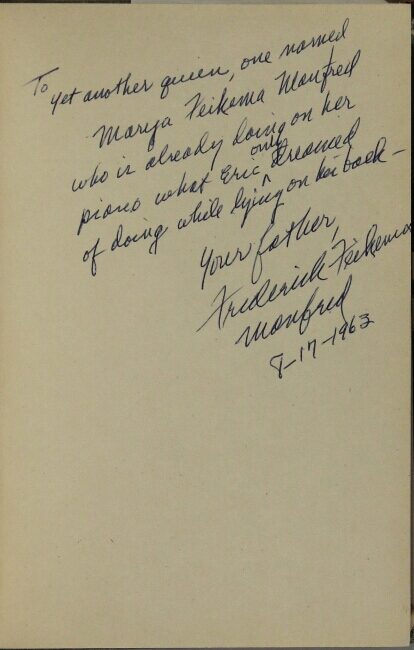 To
yet another queen, one named
Marya Feikema Manfred
who is already doing on her
piano what Eric only dreamed
of doing while lying on his back —
Your father,
Frederick Feikema
Manfred
8-17-1963